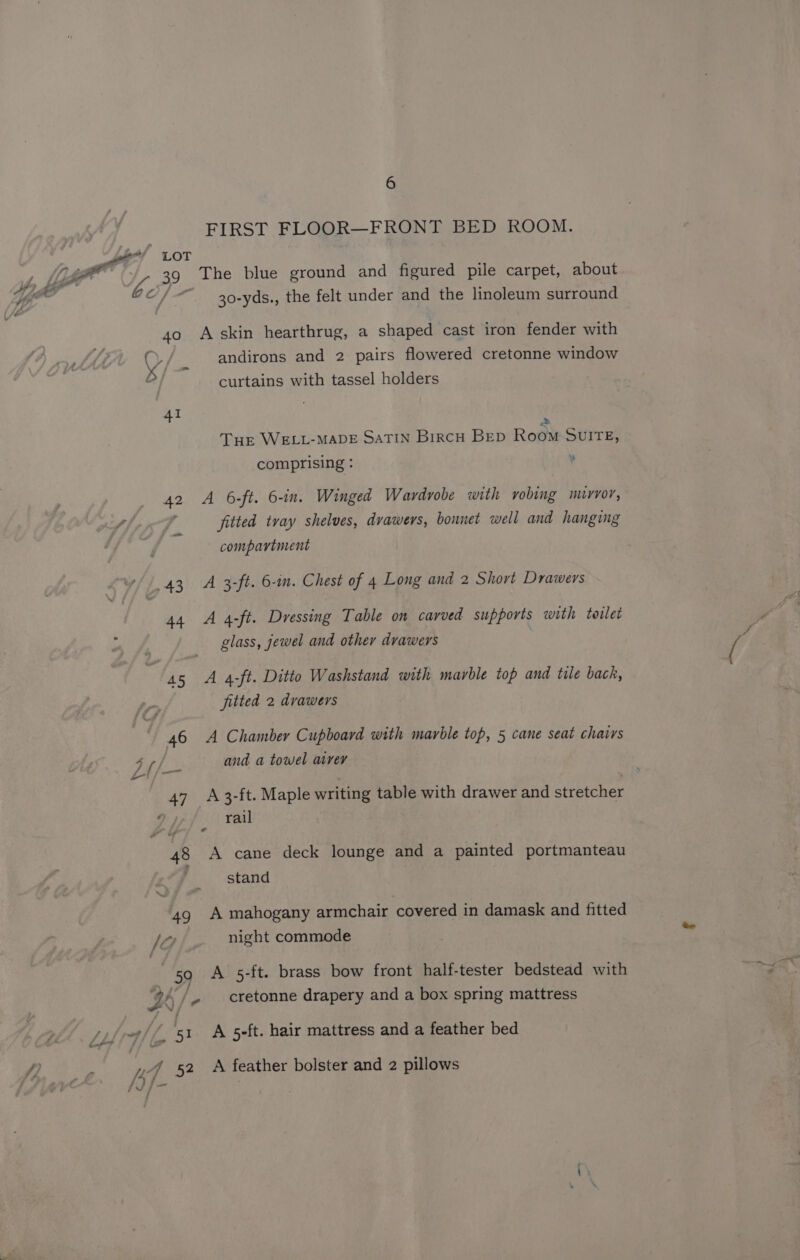 6
FIRST FLOOR—FRONT BED ROOM.
LOT
39 The blue ground and figured pile carpet, about
30-yds., the felt under and the linoleum surround
40 A skin hearthrug, a shaped cast iron fender with
andirons and 2 pairs flowered cretonne window
curtains with tassel holders
41
THE WELL-MADE SATIN BIRCH BED ROOM SUITE,
comprising :
42 A 6-ft. 6-in. Winged Wardrobe with robing mirror,
fitted tray shelves, drawers, bonnet well and hanging
compartment
43 A 3-ft. 6-in. Chest of 4 Long and 2 Short Drawers
44 A 4-ft. Dressing Table on carved supports with toilet
glass, jewel and other drawers
45 A 4-ft. Ditto Washstand with marble top and tile back,
fitted 2 drawers
46 A Chamber Cupboard with marble top, 5 cane seat chairs
and a towel airer
47 A 3-ft. Maple writing table with drawer and stretcher
rail
48 A cane deck lounge and a painted portmanteau
stand
49 A mahogany armchair covered in damask and fitted
night commode
50 A 5-ft. brass bow front half-tester bedstead with
cretonne drapery and a box spring mattress
51 A 5-ft. hair mattress and a feather bed
52 A feather bolster and 2 pillows